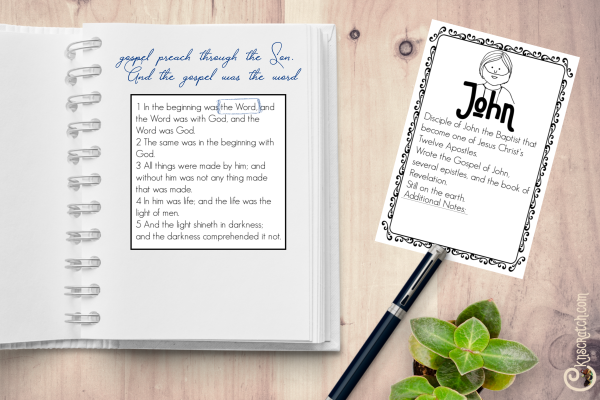 gospel preach through the Son.
And the gospel was the word
1 In the beginning was the Word, and
the Word was with God, and the
Word was God.
2 The same was in the beginning with
God.
3 All things were made by him; and
without him was not any thing made
that was made.
4 In him was life; and the life was the
light of men.
5 And the light shineth in darkness;
and the darkness comprehended it not.
John
Disciple of John the Baptist that
become one of Jesus Christ's
Twelve Apostles.
Wrote the Gospel of John,
several epistles, and the book of
Revelation.
Still on the earth.
Additional Notes:
cknscratch.com